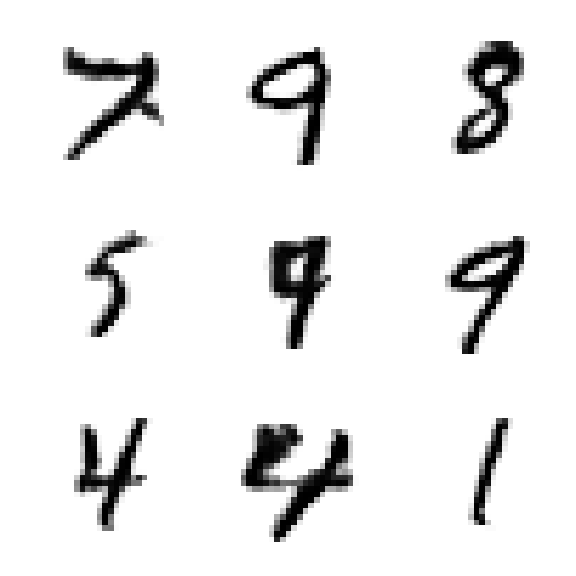 7 9 8
5 9 9
4 4 1